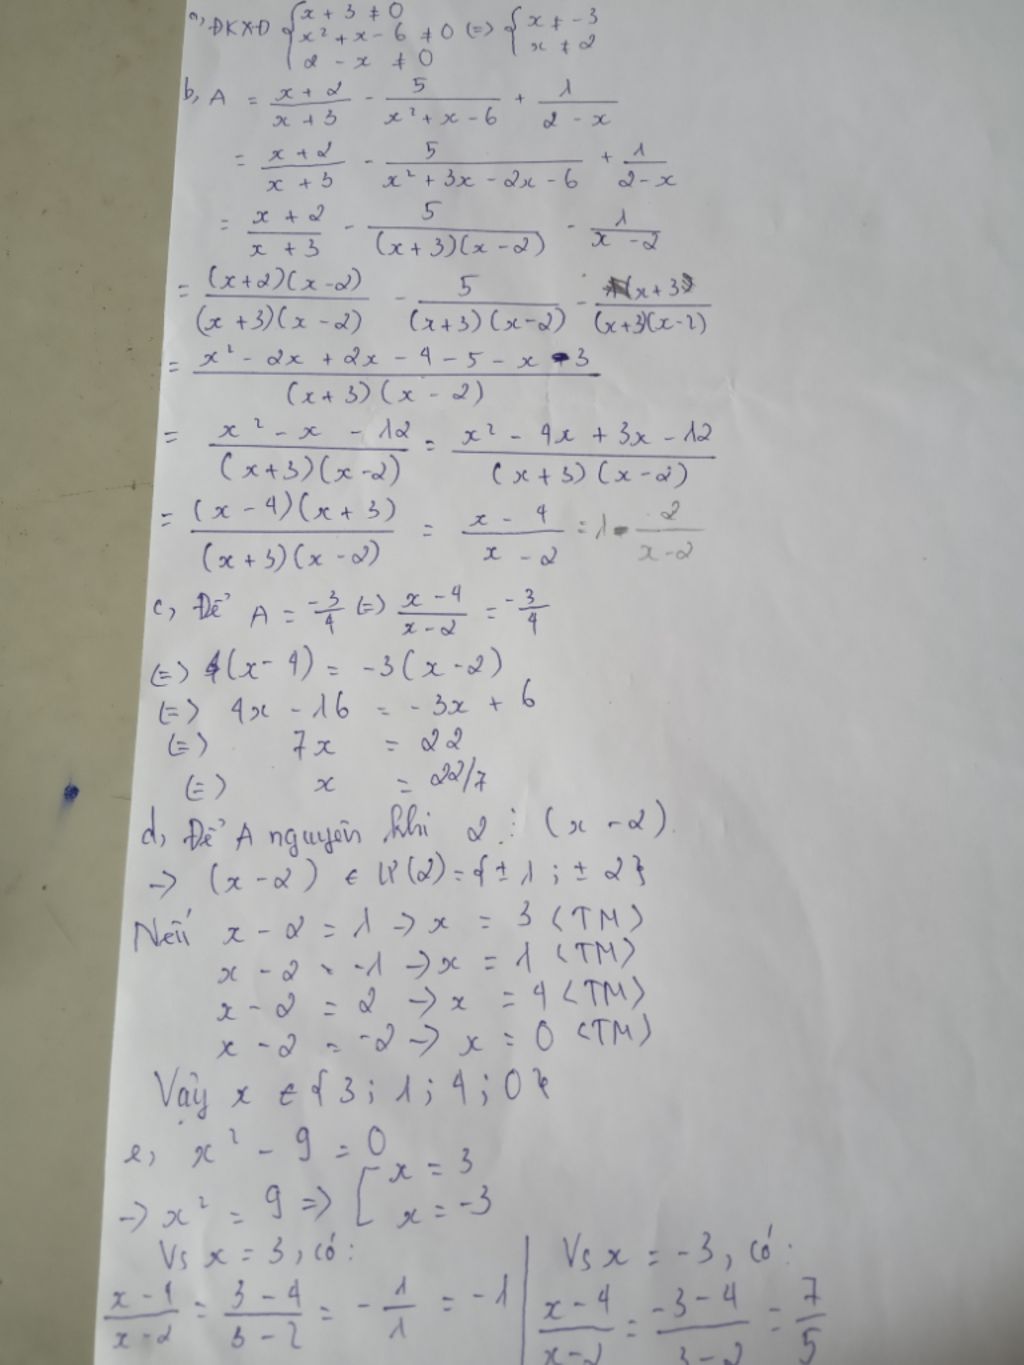 a, ĐKXĐ { x + 3 ≠ 0
x² + x - 6 ≠ 0 (=) { x ≠ -3
2 - x ≠ 0 x ≠ 2
b, A = (x + 2)/(x + 3) - 5/(x² + x - 6) + 1/(2 - x)
= (x + 2)/(x + 3) - 5/(x² + 3x - 2x - 6) + 1/(2 - x)
= (x + 2)/(x + 3) - 5/((x + 3)(x - 2)) - 1/(x - 2)
= ((x + 2)(x - 2))/((x + 3)(x - 2)) - 5/((x + 3)(x - 2)) - (x + 3)/((x + 3)(x - 2))
= (x² - 2x + 2x - 4 - 5 - x - 3)/((x + 3)(x - 2))
= (x² - x - 12)/((x + 3)(x - 2)) = (x² - 4x + 3x - 12)/((x + 3)(x - 2))
= ((x - 4)(x + 3))/((x + 3)(x - 2)) = (x - 4)/(x - 2) = 1 - 2/(x - 2)
c, Để A = -3/4 (=) (x - 4)/(x - 2) = -3/4
(=) 4(x - 4) = -3(x - 2)
(=) 4x - 16 = -3x + 6
(=) 7x = 22
(=) x = 22/7
d, Để A nguyên khi 2 ⋮ (x - 2).
-> (x - 2) ∈ Ư(2) = {±1 ; ±2}
Nếu x - 2 = 1 -> x = 3 (TM)
x - 2 = -1 -> x = 1 (TM)
x - 2 = 2 -> x = 4 (TM)
x - 2 = -2 -> x = 0 (TM)
Vậy x ∈ {3 ; 1 ; 4 ; 0}
e, x² - 9 = 0
-> x² = 9 => [ x = 3
x = -3
Vs x = 3, có :
(x - 4)/(x - 2) = (3 - 4)/(3 - 2) = -1/1 = -1
Vs x = -3, có :
(x - 4)/(x - 2) = (-3 - 4)/(3 - 2) = 7/5